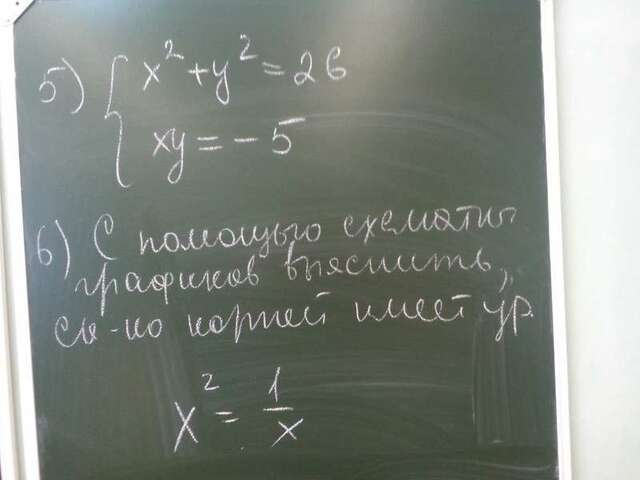 5) { x² + y² = 26
xy = -5
6) С помощью схематич.
графиков выяснить,
ск-ко корней имеет ур.
x² = 1/x